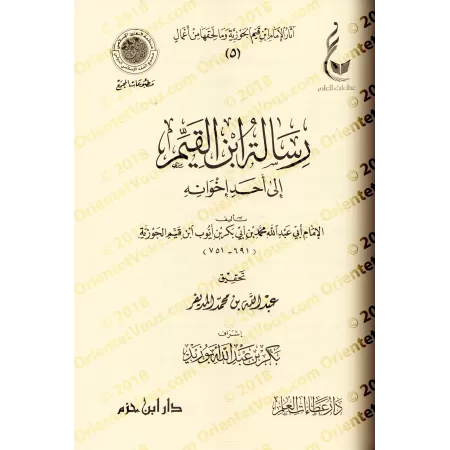 آثار الإمام ابن قيم الجوزية وما لحقها من أعمال
(٥)
عطاءات العلم
مطبوعات المجمع
رسالة ابن القيم
إلى أحد إخوانه
تأليف
الإمام أبي عبد الله محمد بن أبي بكر بن أيوب ابن قيم الجوزية
(٦٩١ - ٧٥١)
تحقيق
عبد الله بن محمد المديفر
إشراف
بكر بن عبد الله أبو زيد
دار عطاءات العلم
دار ابن حزم
OrientetVous.com © 2018